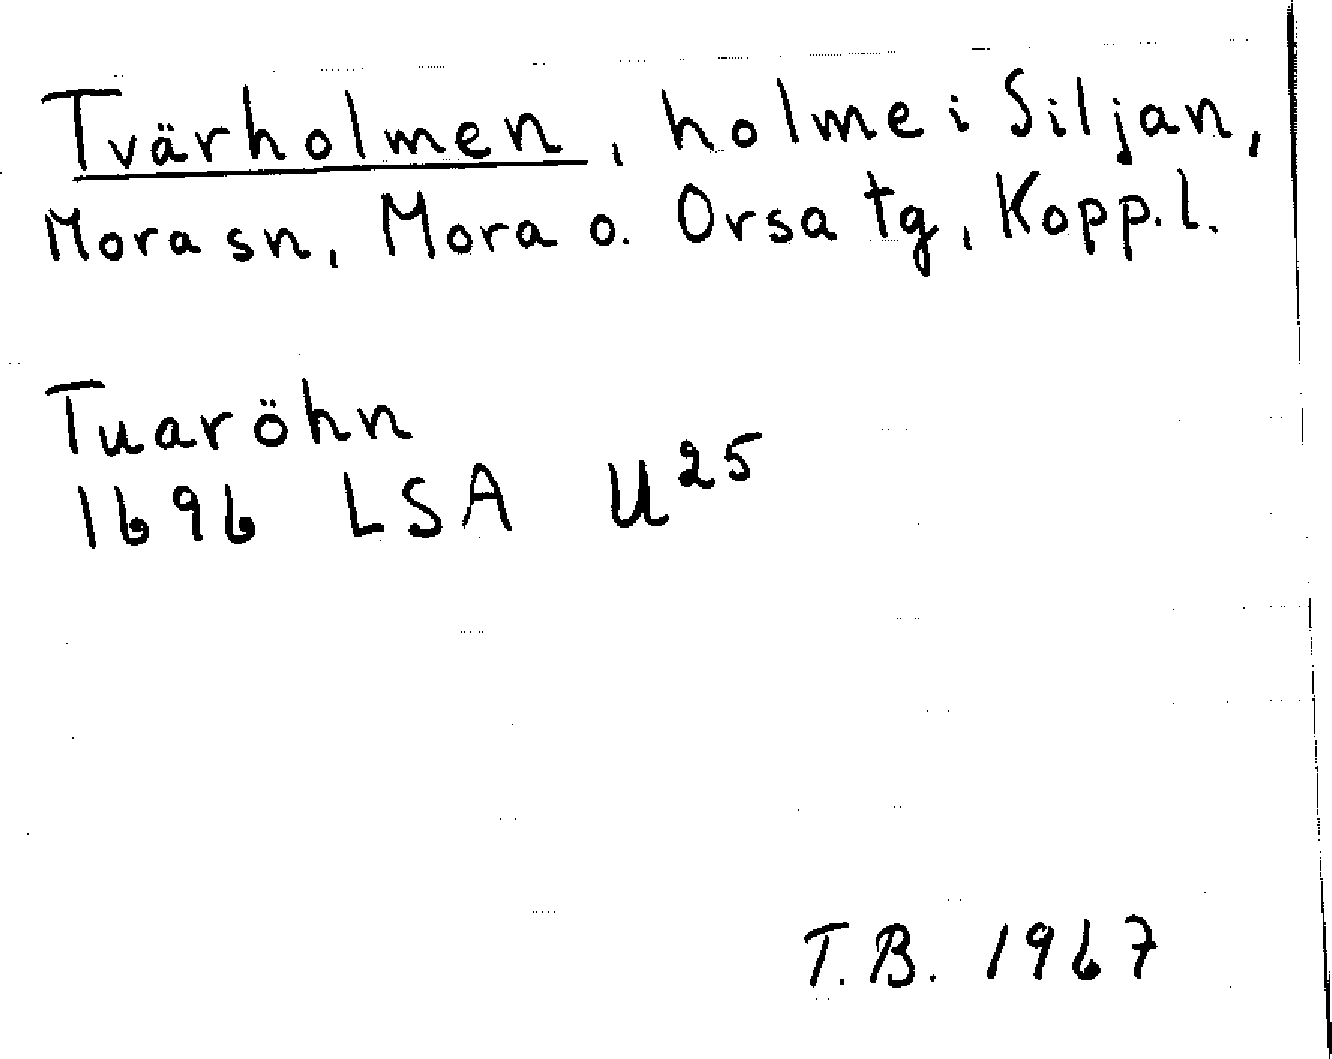 Tvärholmen, holme i Siljan,
Mora sn, Mora o. Orsa tg, Kopp. l.
Tuaröhn
1696 LSA U25
T.B. 1967